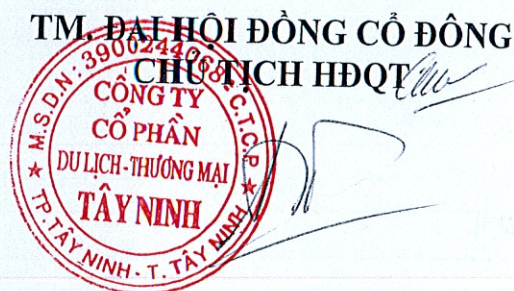 TM. ĐẠI HỘI ĐỒNG CỔ ĐÔNG
CHỦ TỊCH HĐQT
M.S.D.N: 3900244068-C.T.C.P
CÔNG TY
CỔ PHẦN
DU LỊCH-THƯƠNG MẠI
TÂY NINH
TP.TÂY NINH - T. TÂY NINH